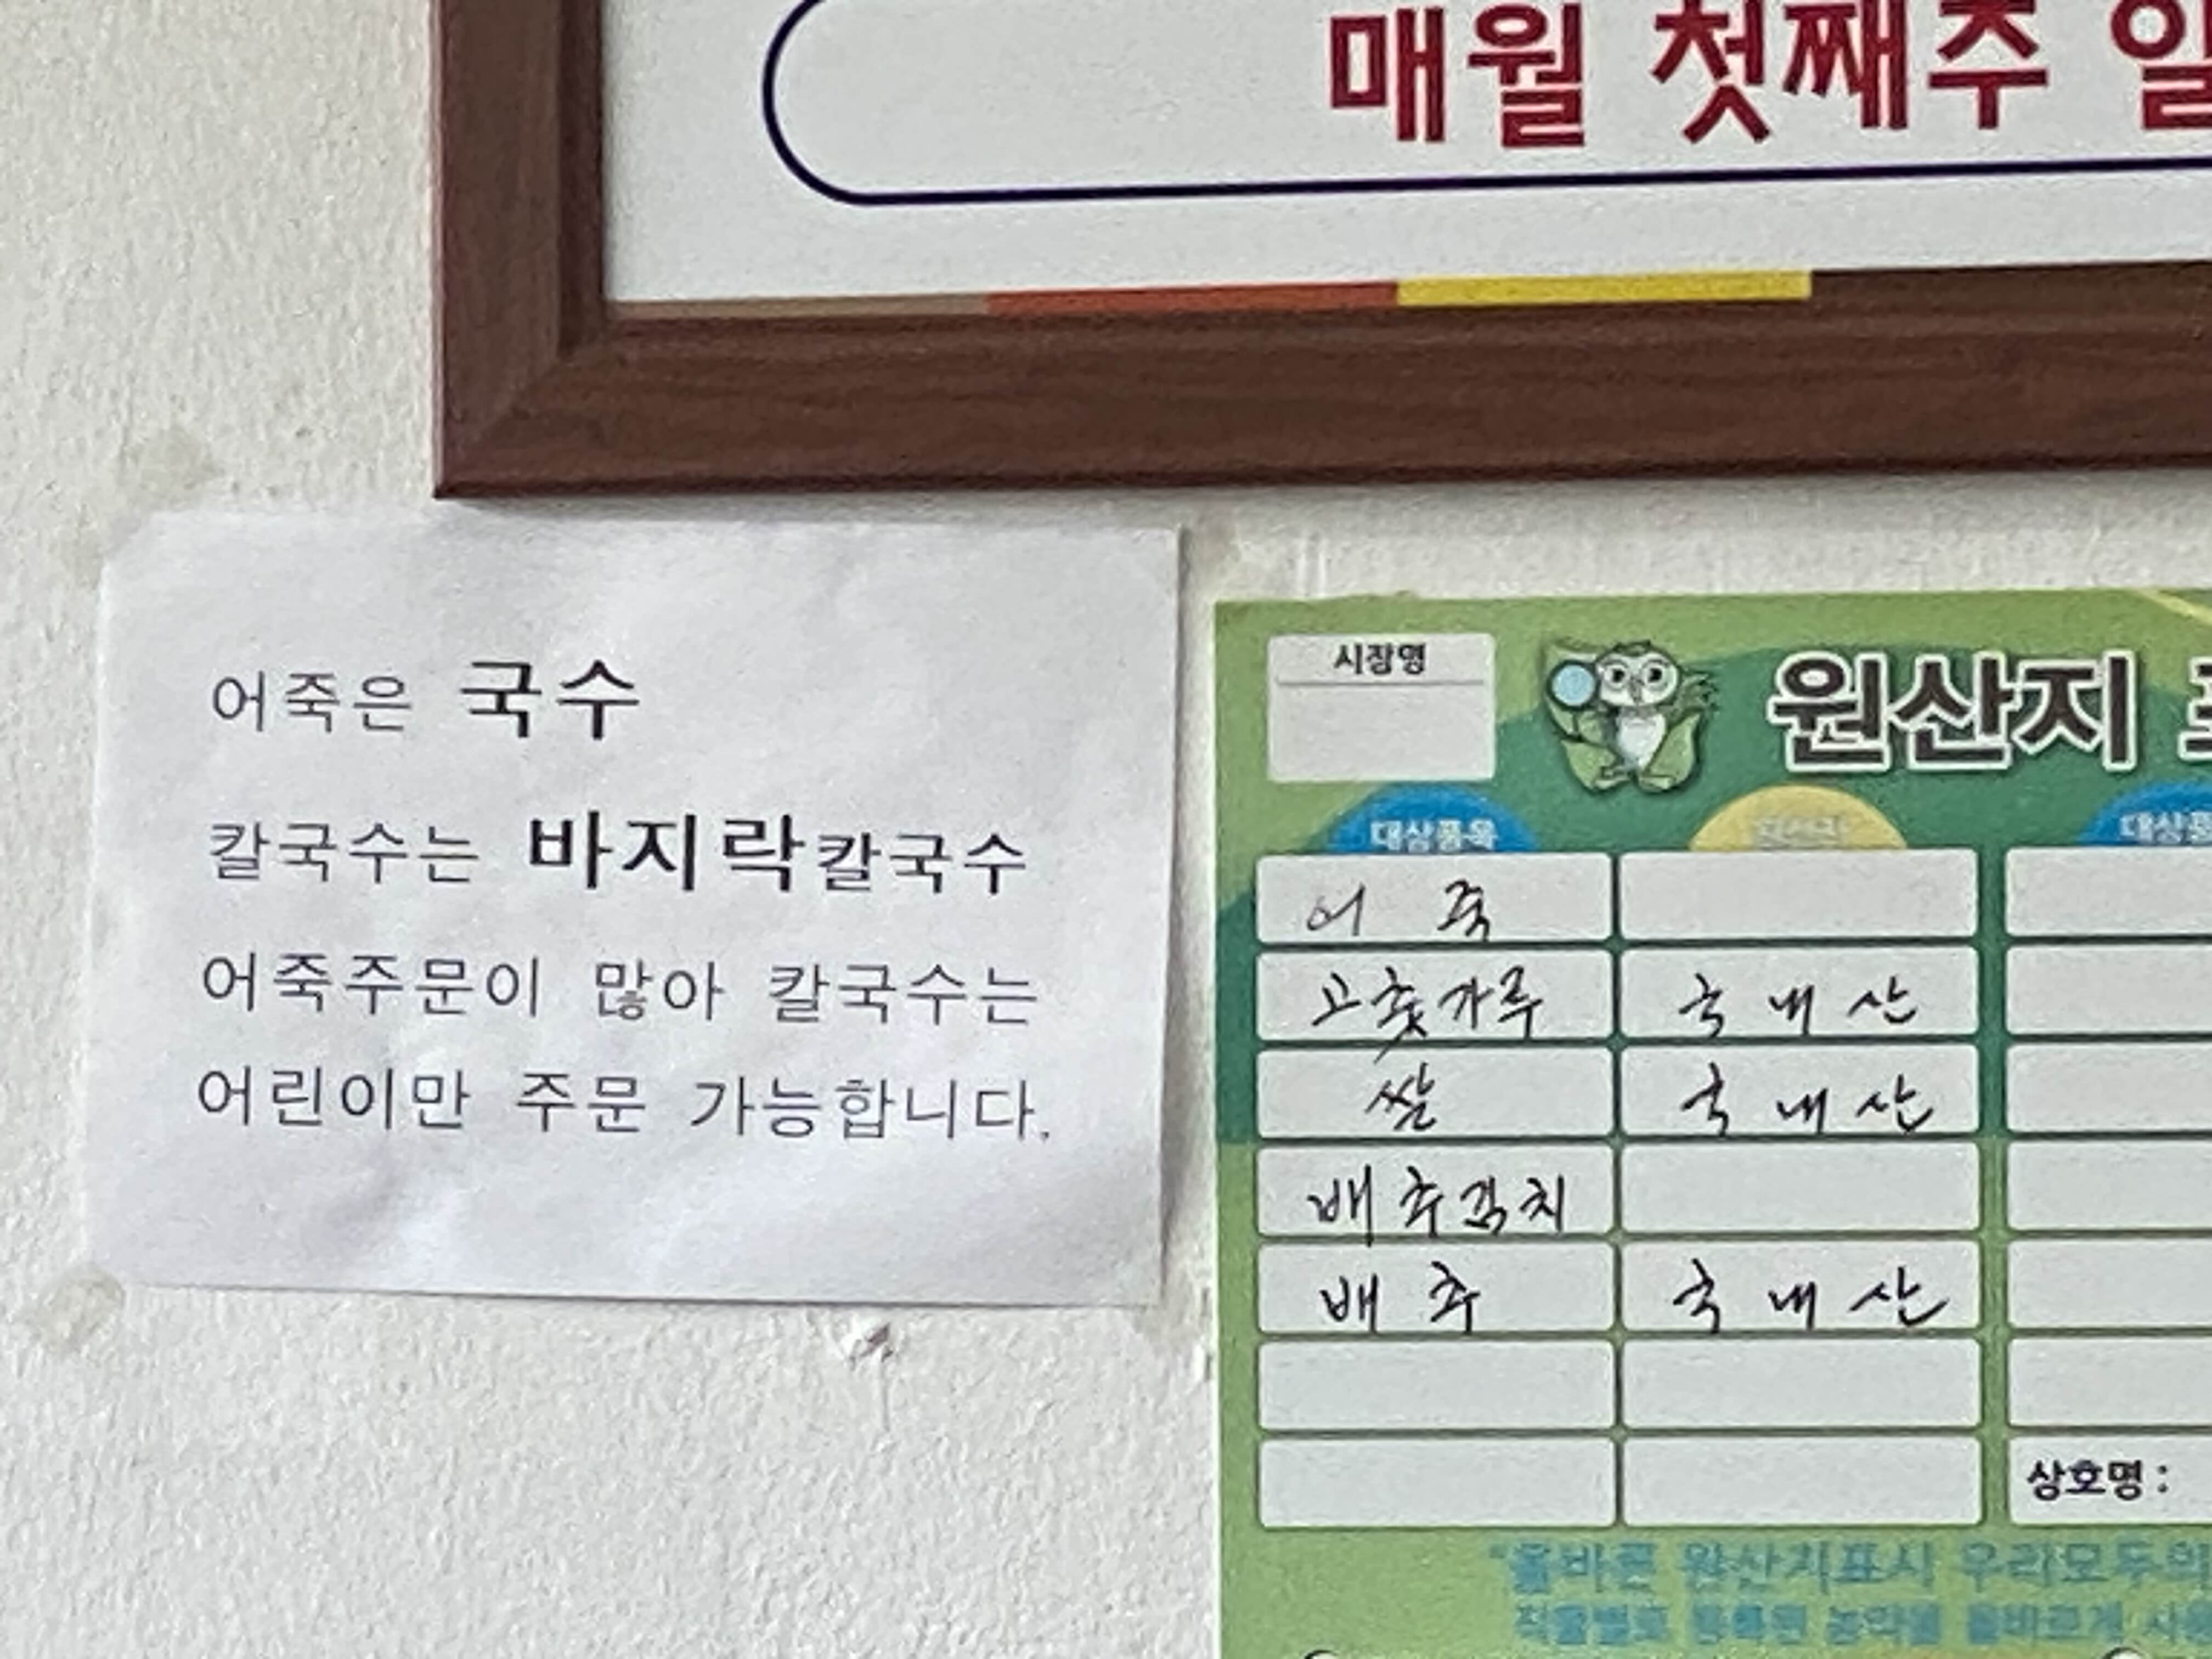 매월 첫째주 일
어죽은 국수
칼국수는 바지락칼국수
어죽주문이 많아 칼국수는
어린이만 주문 가능합니다.
시장명
원산지
대상품목 원산지 대상품
어죽
고춧가루 국내산
쌀 국내산
배추김치
배추 국내산
상호명 :
"올바른 원산지표시 우리모두의
작물별로 등록된 농약을 올바르게 사용